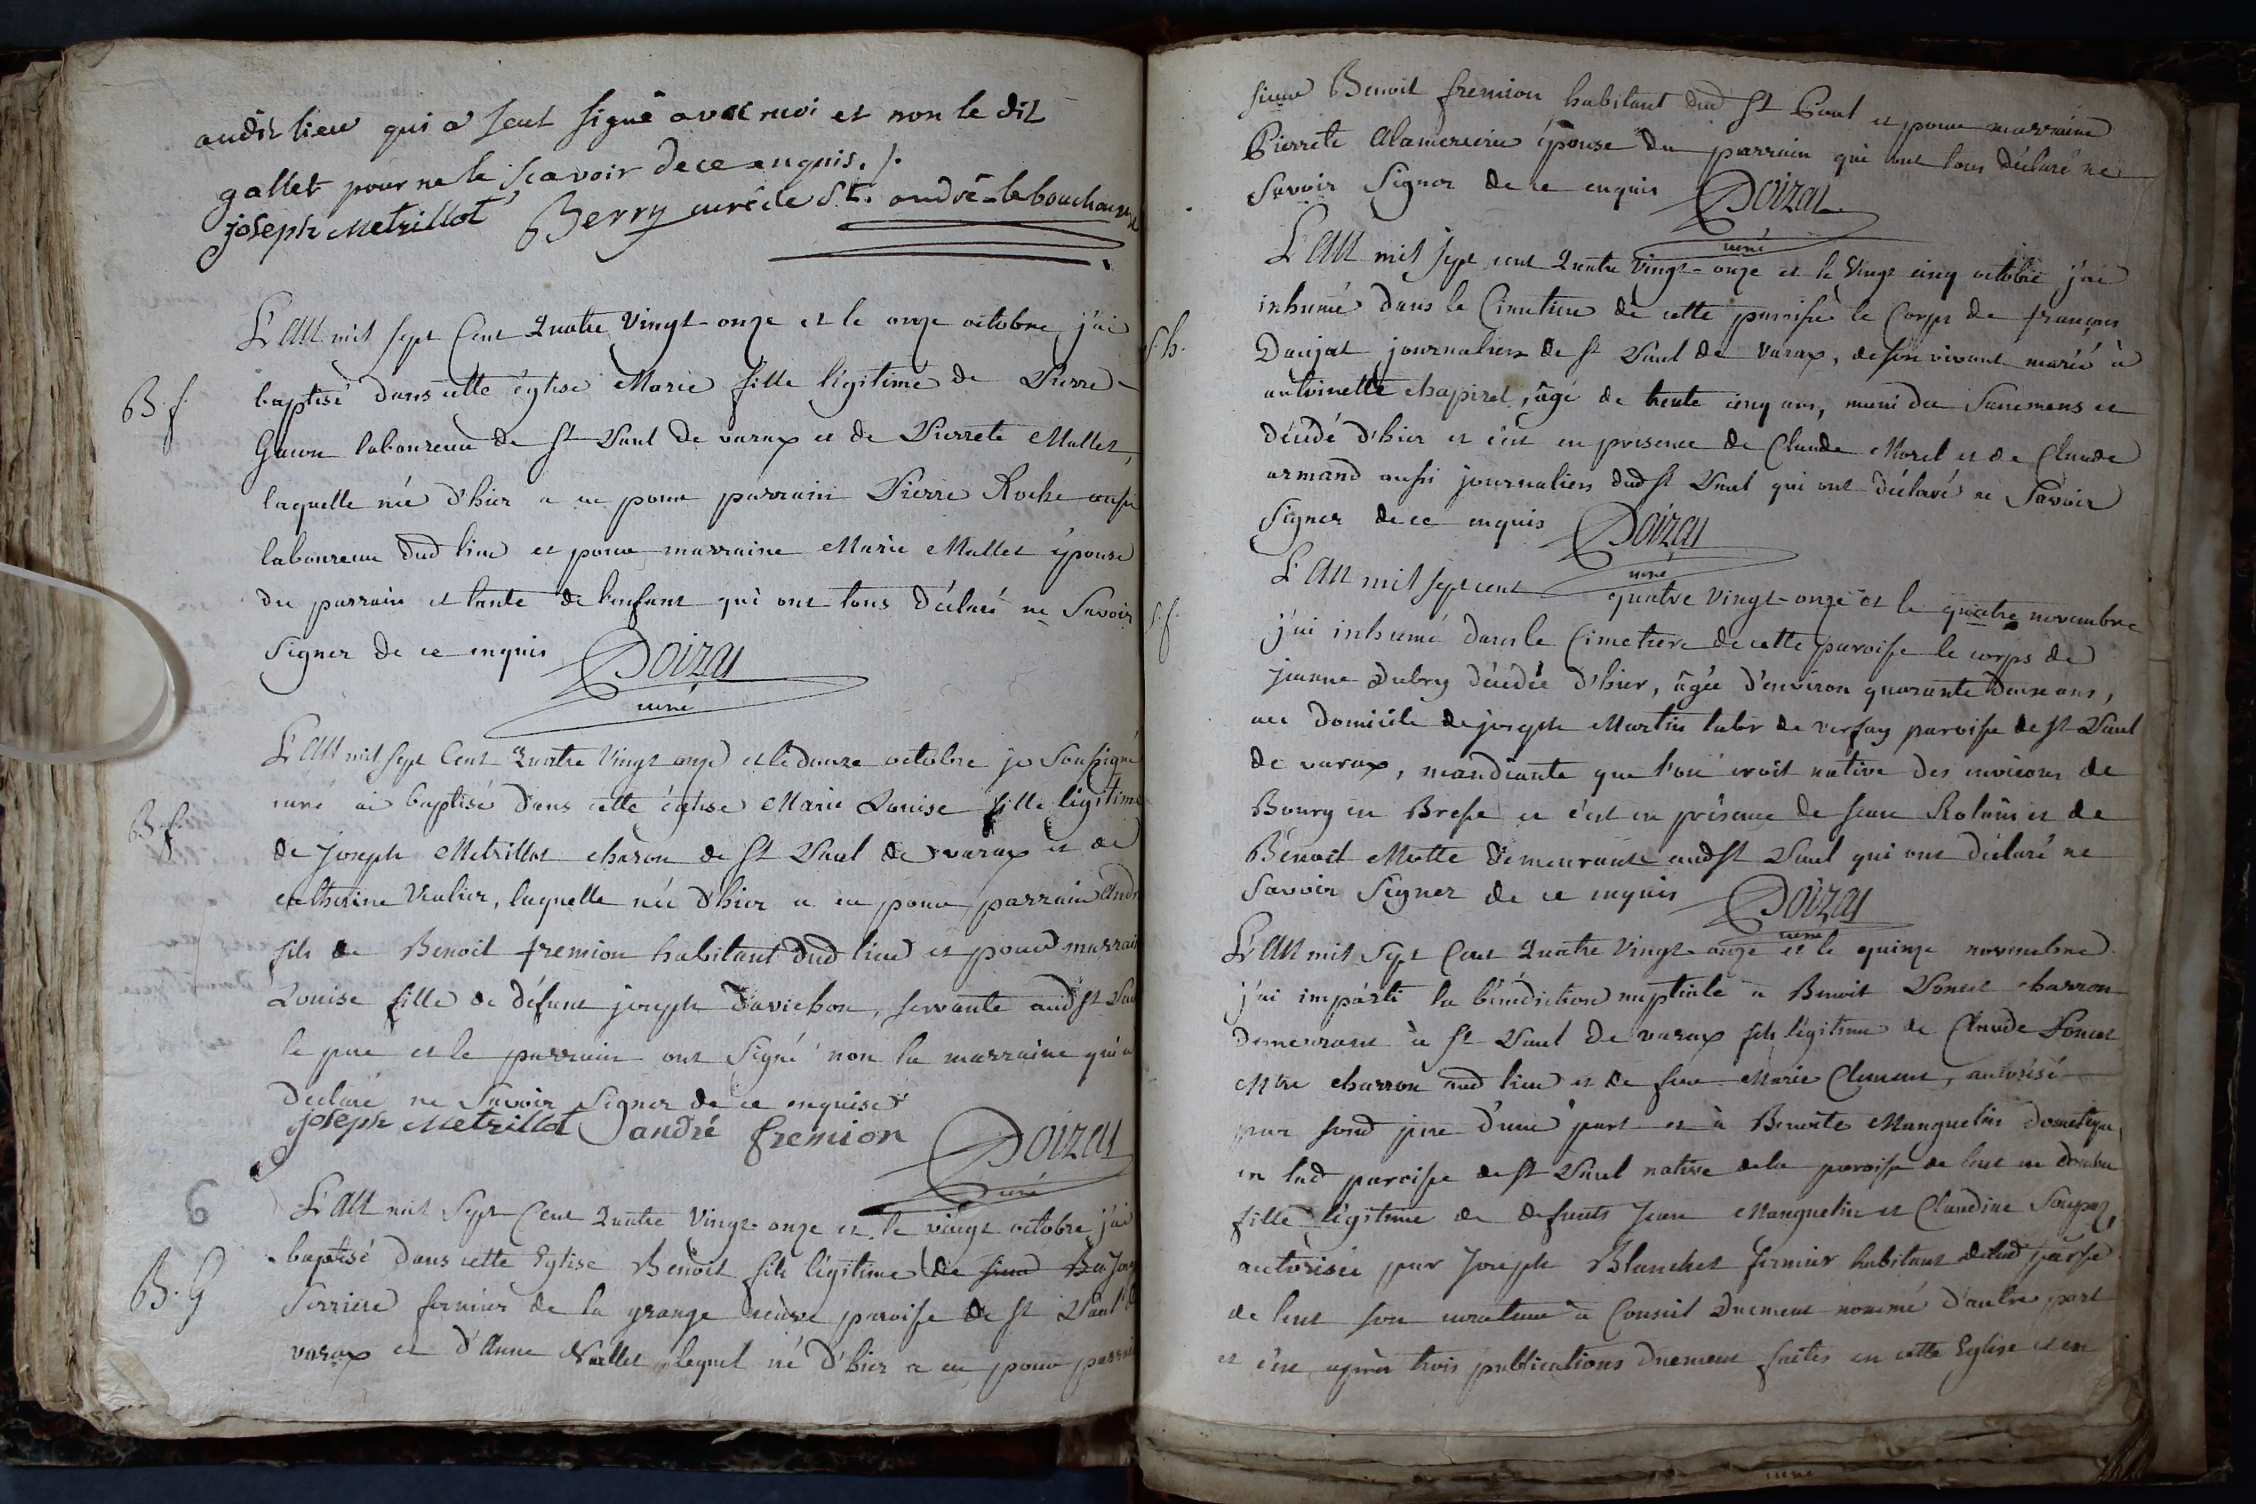 audit lieu qui a scut signé avec moi et non le dit
gallet pour ne le sçavoir de ce enquis ./.
joseph Metrillot Berry curé de St. andré-le bouchoux
L'an mil sept Cent Quatre Vingt-onze et le onze octobre j'ai
B. f. baptisé dans cette église Marie fille légitime de Pierre
laboureur de St Paul de varax et de Pierrete Mallet,
laquelle née d'hier a eu pour parrain Pierre Roche aussi
laboureur dud lieu et pour marraine Marie Mallet épouse
du parrain et tante de l'enfant qui ont tous déclaré ne Savoir
Signer de ce enquis Doizat
curé
L'an mil sept Cent Quatre Vingt onze et le douze octobre je Soussigné
curé ai baptisé dans cette église Marie Louise fille légitime
B. f.
de Joseph Metrillot charon de St Paul de varax et de
catherine, laquelle née d'hier a eu pour parrain André
fils de Benoit fremion habitant dud lieu et pour marraine
Louise fille de défunt joseph Davichon, servante aud St Paul
le pere et le parrain ont Signé non la marraine qui a
Déclaré ne Savoir Signer de ce enquise
joseph Metrillot andré fremion Doizat
curé
6 L'an mil Sept Cent Quatre Vingt-onze et le vingt octobre j'ai
baptisé dans cette Eglise Benoit fils légitime de
B. G Perriere fermier de la grange neuve paroisse de St Paul de
varax et d'Anne Vallet lequel né d'hier a eu pour parrain
sieur Benoit fremion habitant dud St Paul et pour marraine
Pierrete Alamercerie épouse du parrain qui ont tous déclaré ne
Savoir Signer de ce enquis Doizat
curé
L'an mil sept cent Quatre Vingt-onze et le Vingt cinq octobre j'ai
inhumé dans le Cimetiere de cette paroisse le Corps de françois
S. h. Daujat journalier de St Paul de Varax, de son vivant marié à
antoinette chapiret, âgé de trente cinq ans, muni des Sacremens et
décédé d'hier et c'est en presence de Claude Morel et de Claude
armand aussi journaliers dud St Paul qui ont déclaré ne Savoir
Signer de ce enquis Doizat
curé
L'an mil sept cent quatre Vingt-onze et le quatre novembre
S. f. j'ai inhumé dans le Cimetiere de cette paroisse le corps de
jeanne Dubry décédée d'hier, âgée d'environ quarante douze ans,
au domicile de joseph Martin labr de versay paroisse de St Paul
de varax, mandiante que l'on croit native des environs de
Bourg en Bresse et c'est en présence de jean Rolain et de
Bénoit Motte demeurants aud St Paul qui ont déclaré ne
Savoir Signer de ce enquis Doizat
curé
L'an mil Sept Cent Quatre Vingt-onze et le quinze novembre
j'ai impárti la bénédiction nuptiale a Benoit Poncet charron
demeurant à St Paul de varax fils légitime de Claude Poncet
Mtre charron aud lieu et de feue Marie Clement, autorisé
par sond pere d'une part et à Benoite Manguelin domestique
en lad paroisse de St Paul native de la paroisse de lent en dombe
fille légitime de defunts Jean Manguelin et Claudine
autorisée par Joseph Blanchet fermier habitant de lad parsse
de lent son curateur a Conseil Duement nommé d'autre part
et c'est après trois publications Duement faites en cette Eglise et en